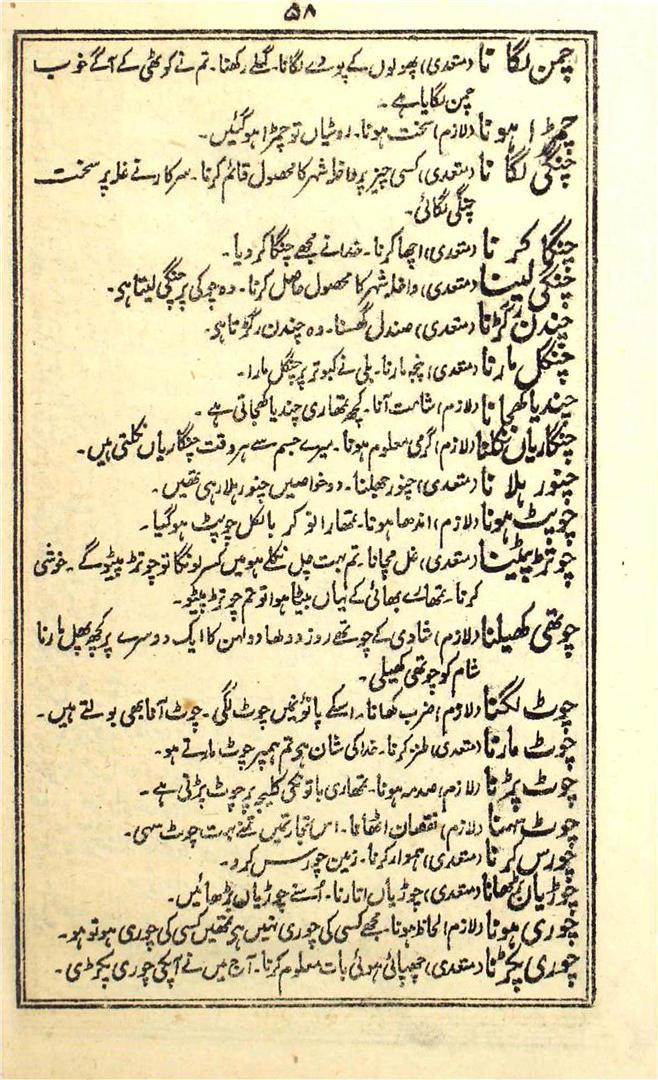 ۵۸
چمن لگانا (متعدی) پھولوں کے پودے لگانا۔ گملے رکھنا۔ تم نے کوٹھی کے آگے خوب
چمن لگایا ہے۔
چمڑا ہونا (لازم) سخت ہونا۔ روٹیاں تو چمڑا ہو گئیں۔
چنگی لگانا (متعدی) کسی چیز پر داخلہ شہر کا محصول قائم کرنا۔ سرکار نے غلہ پر سخت
چنگی لگائی۔
چنگا کرنا (متعدی) اچھا کرنا۔ خدا نے مجھے چنگا کر دیا۔
چنگی لینا (متعدی) داخلہ شہر کا محصول حاصل کرنا۔ وہ چوکی پر چنگی لیتا ہی۔
چندن رگڑنا (متعدی) صندل گھسنا۔ وہ چندن رگڑتا ہی۔
چنگل مارنا (متعدی) پنجہ مارنا۔ بلی نے کبوتر پر چنگل مارا۔
چندیا کھجانا (لازم) شامت آنا۔ کچھ تمھاری چندیا کھجاتی ہے۔
چنگاریاں نکلنا (لازم) گرمی معلوم ہونا۔ میرے جسم سے ہر وقت چنگاریاں نکلتی ہیں۔
چنور ہلانا (متعدی) چنور جھلنا۔ دو خواصیں چنور ہلا رہی تھیں۔
چوپٹ ہونا (لازم) اندھا ہونا۔ تمھارا نوکر بالکل چوپٹ ہو گیا۔
چوتڑ پیٹنا (متعدی) غل مچانا۔ تم بہت چل نکلے ہو میں کسر لونگا تو چوتڑ پیٹو گے۔ خوشی
کرنا۔ تمھارے بھائی کے یہاں بیٹا ہوا تو تم چوتڑ پیٹو۔
چوتھی کھیلنا (لازم) شادی کے چوتھے روز دولھا دولہن کا ایک دوسرے پر کچھ پھل مارنا
شام کو چوتھی کھیلی۔
چوٹ لگنا (لازم) ضرب کھانا۔ اسکے پانؤنمیں چوٹ لگی۔ چوٹ آنا بھی بولتے ہیں۔
چوٹ مارنا (متعدی) طنز کرنا۔ خدا کی شان ہی تم ہمپر چوٹ مارتے ہو۔
چوٹ پڑنا (لازم) صدمہ ہونا۔ تمھاری باتونکی کلیجہ پر چوٹ پڑتی ہے۔
چوٹ سہنا (لازم) نقصان اٹھانا۔ اس تجارتمیں تمنے بہت چوٹ سہی۔
چورس کرنا (متعدی) ہموار کرنا۔ زمین چورس کر دو۔
چوڑیاں بڑھانا (متعدی) چوڑیاں اتارنا۔ اُسنے چوڑیاں بڑھائیں۔
چوری ہونا (لازم) لحاظ ہونا۔ مجھے کسی کی چوری نہیں ہی تمھیں کسی کی چوری ہو تو ہو۔
چوری پکڑنا (متعدی) چھپائی ہوئی بات معلوم کرنا۔ آج میں نے آپکی چوری پکڑی۔